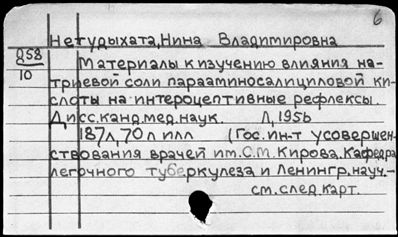 6
Нетудыхата, Нина Владимировна
958
10
Материалы к изучению влияния нат-
триевой соли парааминосалициловой ки-
слоты на интероцептивные рефлексы.
Дисс. канд. мед. наук. Л, 1956
187 л, 70 л илл (Гос. ин-т усовершен-
ствования врачей им. С.М. Кирова. Кафедра
легочного туберкулеза и Ленингр. науч.-
см. след карт.